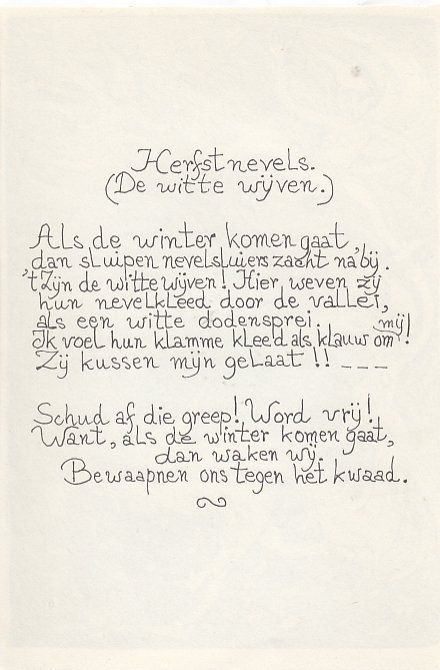 Herfstnevels.
(De witte wijven.)
Als de winter komen gaat,
dan sluipen nevelsluiers zacht na'bij.
't Zijn de witte wijven! Hier, weven zij
hun nevelkleed door de vallei,
als een witte dodensprei.
Ik voel hun klamme kleed als klauw om mij!
Zij kussen mijn gelaat!! ---
Schud af die greep! Word vrij!
Want, als de winter komen gaat,
dan waken wij.
Bewaapnen ons tegen het kwaad.